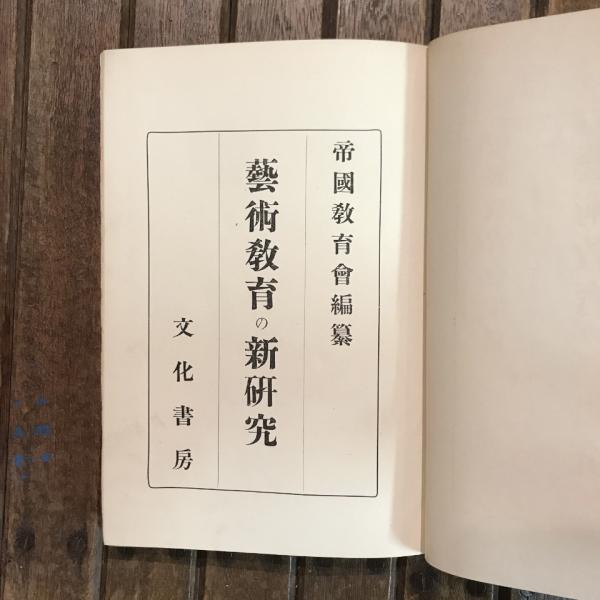 帝國教育會編纂
藝術教育の新研究
文化書房